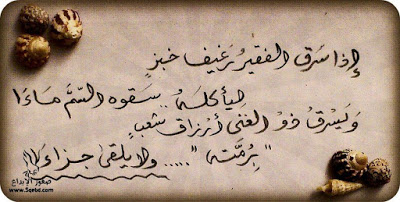 إذا سَرق الفقيرُ رَغيفَ خبزٍ
ليأكلهُ .. سقوه السّمَّ ماءَا
وَيَسْرقُ ذو الغنى أرزاقَ شعبٍ
"بِرُمَّته" ..... ولا يلقى جزاءَا
صقور الإبداع
www.5qebd.com